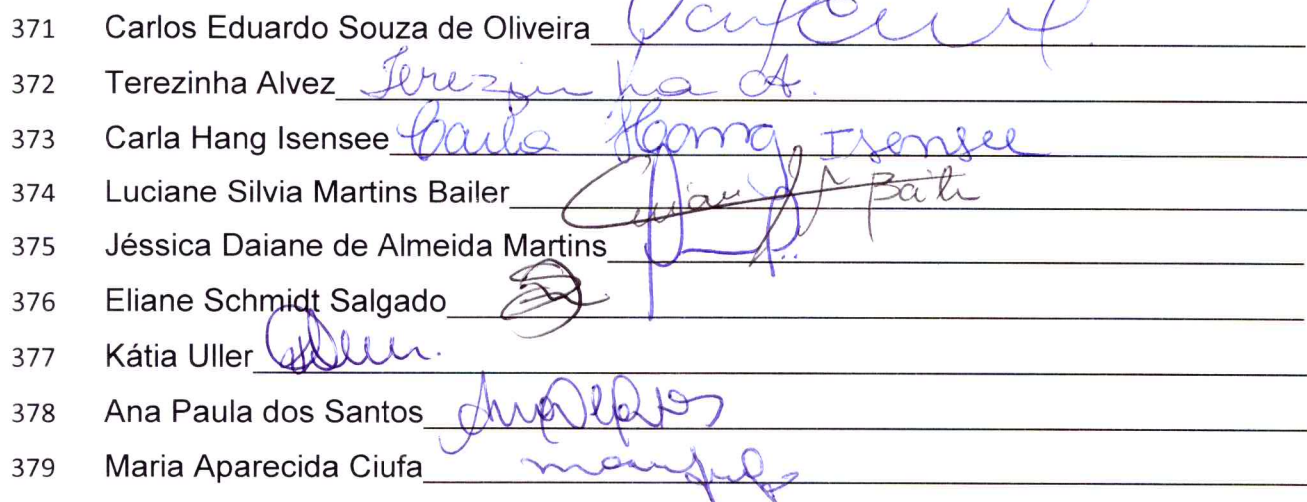 371 Carlos Eduardo Souza de Oliveira
372 Terezinha Alvez Terezinha A.
373 Carla Hang Isensee Carla Hang Isensee
374 Luciane Silvia Martins Bailer
375 Jéssica Daiane de Almeida Martins
376 Eliane Schmidt Salgado
377 Kátia Uller
378 Ana Paula dos Santos
379 Maria Aparecida Ciufa